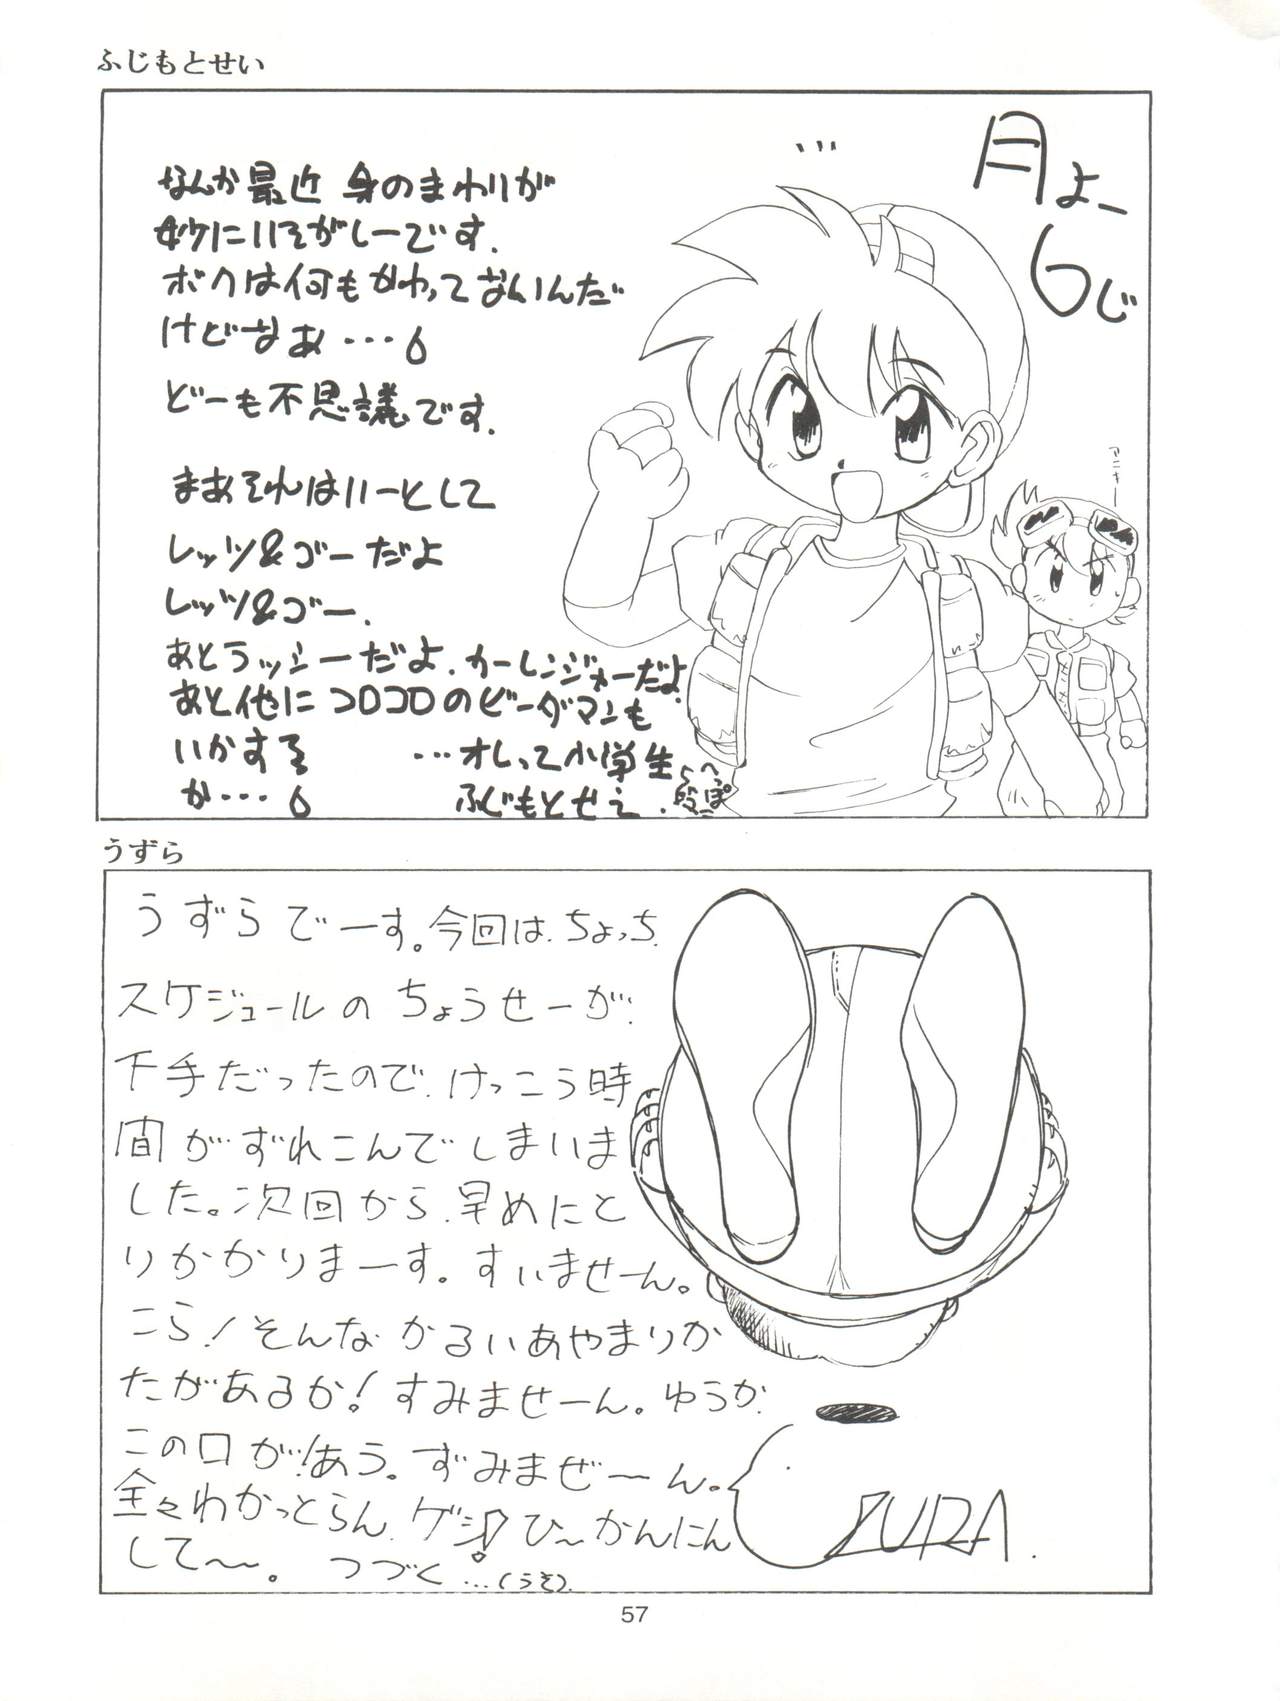 ふじもとせい
月よー
6じ
なんか最近 身のまわりが
妙にいそがしーです.
ボクは何もかわってないんだ
けどなあ・・・
どーも不思議です.
まあそれはいーとして
レッツ&ゴーだよ
レッツ&ゴー.
あとラッシーだよ.カーレンジャーだよ
あと他にコロコロのビーダマンも
いかする
か・・・
…オレって小学生
ふじもとせえ.
アニキー
うずら
うずらでーす。今回は.ちょっち.
スケジュールの ちょうせーが.
下手だったので.けっこう時
間がずれこんでしまいま
した。次回から.早めにと
りかかりまーす。すいませーん。
こら!そんな かるいあやまりか
たがあるか!すみませーん。ゆうか.
この口が!!あう。ずみまぜ〜ん。
全々わかっとらん.ゲシ!ひ〜かんにん
して〜〜。 つづく…(うそ).
ZURA.
57